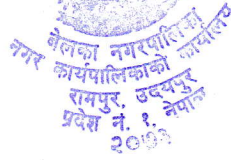 बेलका नगरपालिका
नगर कार्यपालिकाको कार्यालय
रामपुर, उदयपुर
प्रदेश नं. १, नेपाल
२०७३